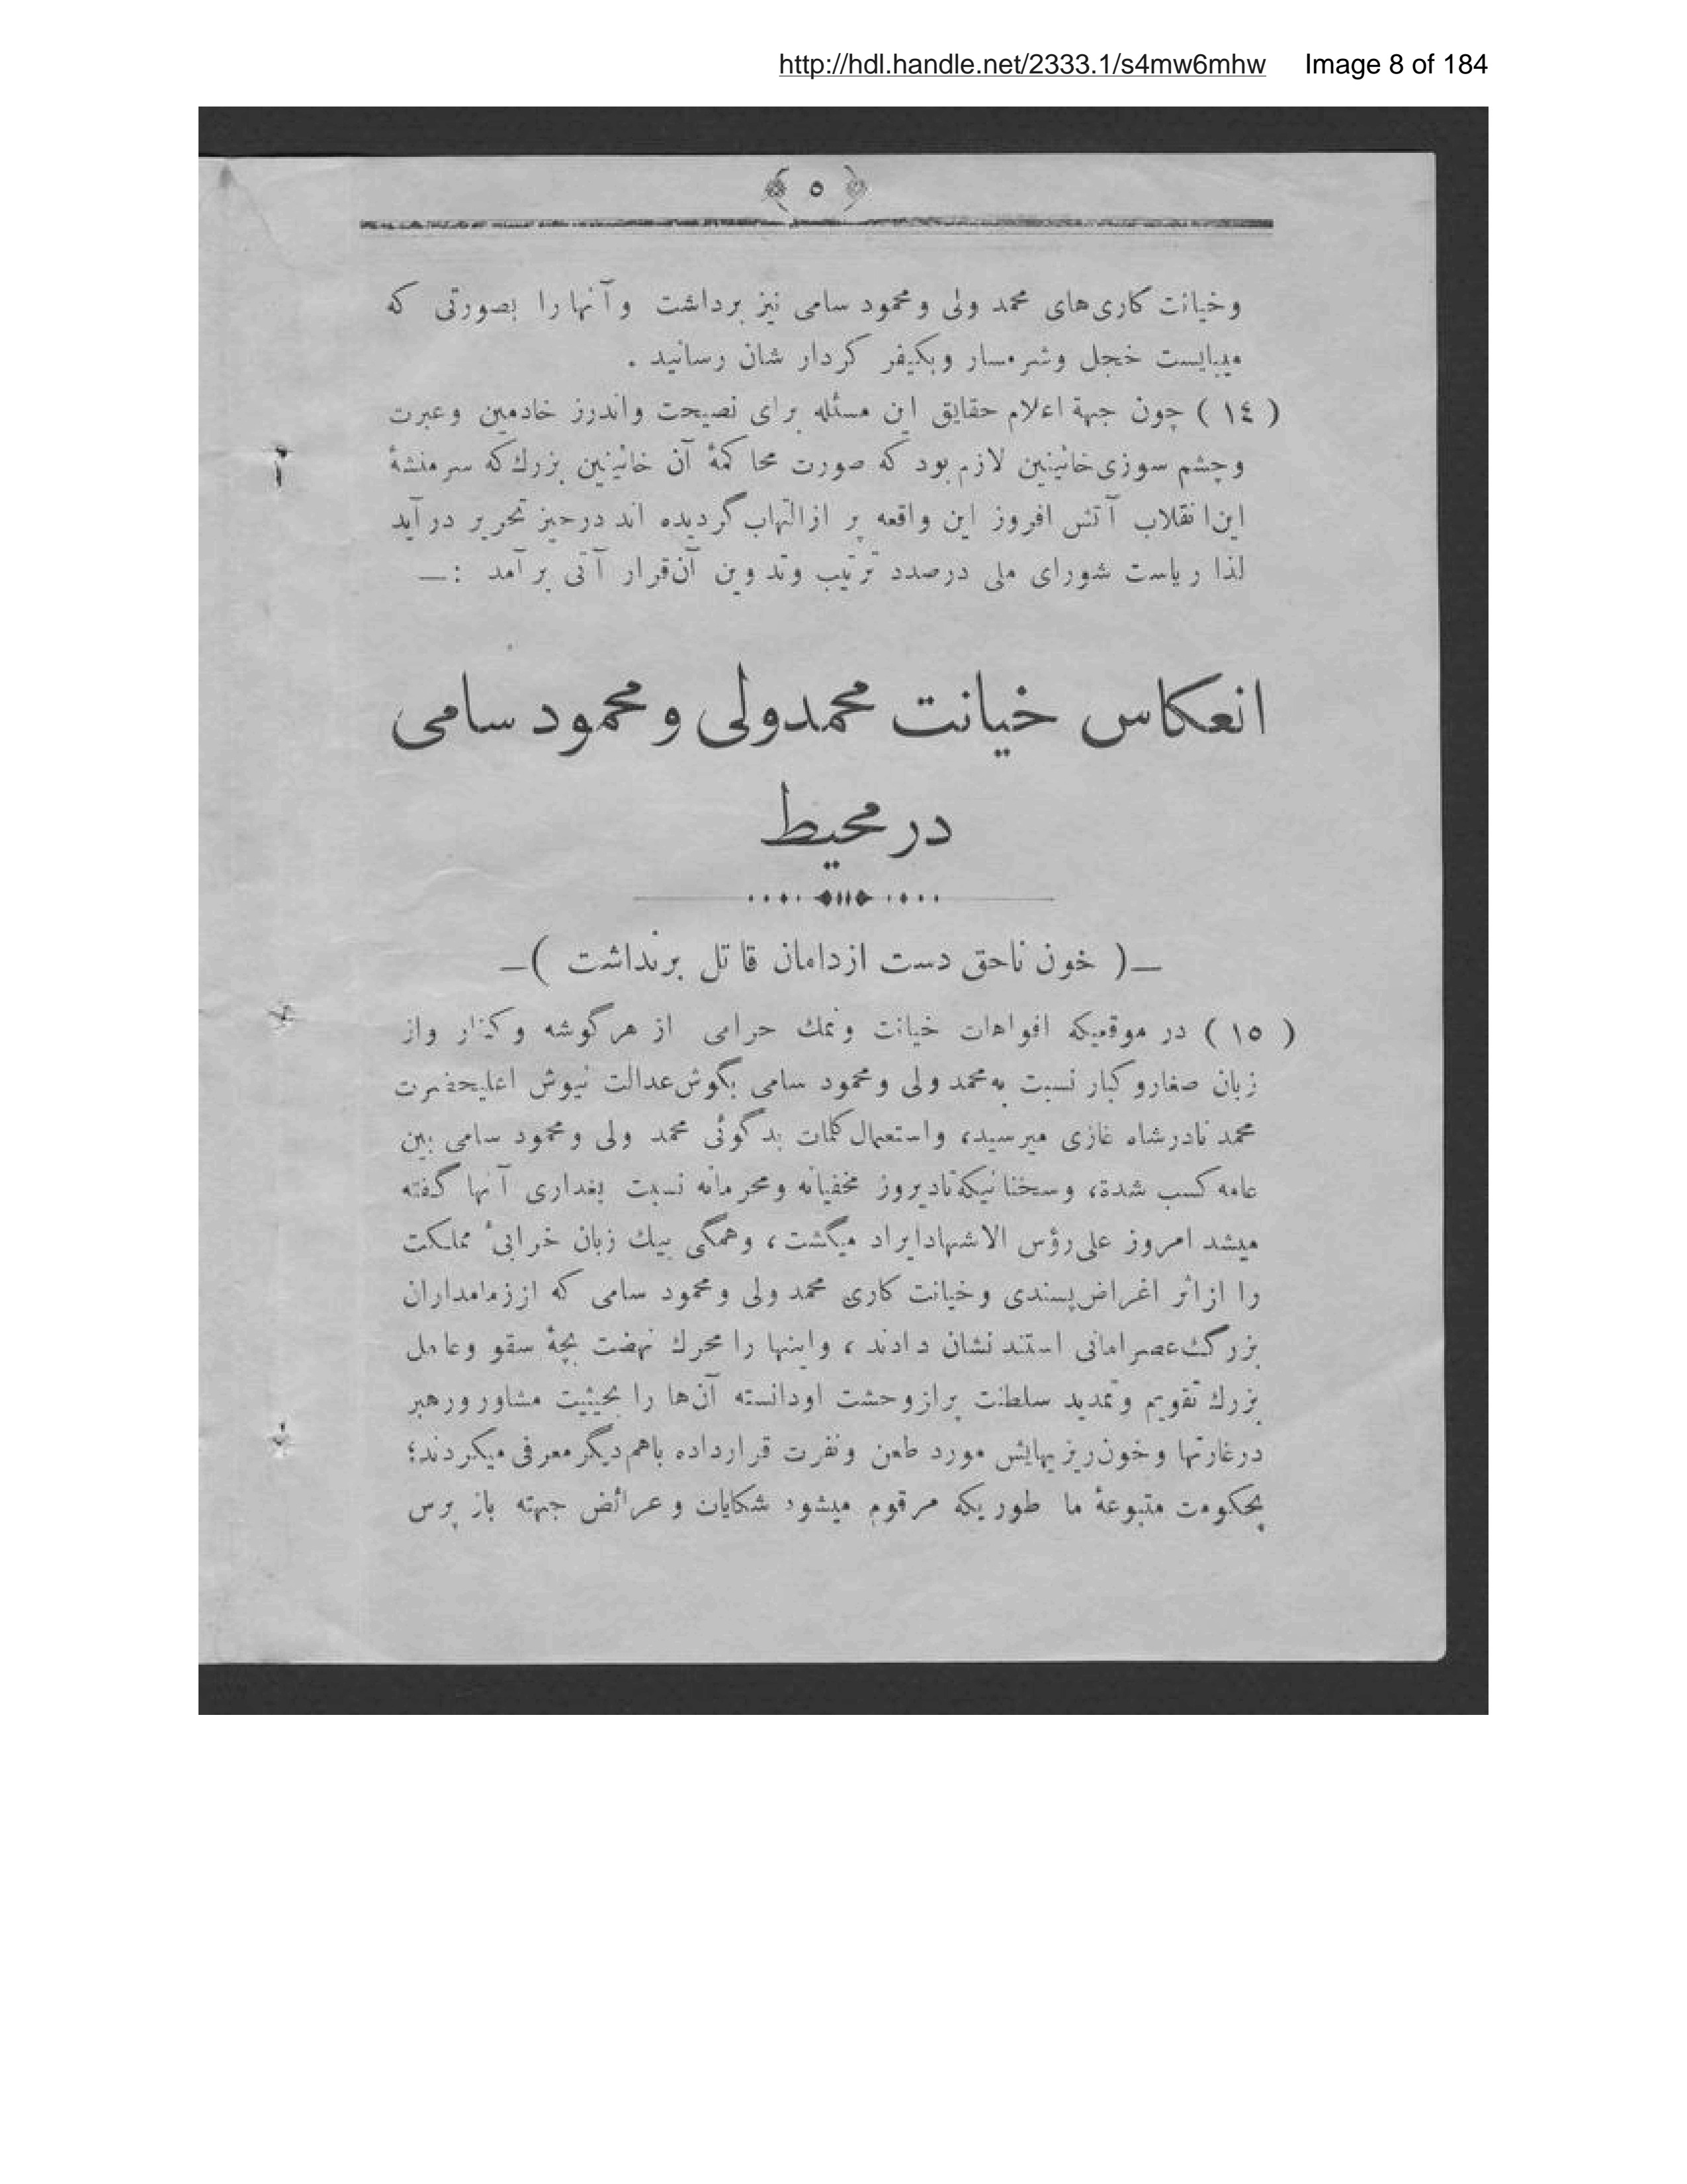 http://hdl.handle.net/2333.1/s4mw6mhw Image 8 of 184
﴿ ٥ ﴾
وخیانت کاری‌های محمد ولی ومحمود سامی نیز برداشت وآنها را بصورتی که
میبایست خجل وشرمسار وبکیفر کردار شان رسانید .
( ١٤ ) چون جهة اعلام حقایق این مسئله برای نصیحت واندرز خادمین وعبرت
وچشم سوزی خائینین لازم بود که صورت محاکمهٔ آن خائینین بزرك که سرمنشهٔ
این انقلاب آتش افروز این واقعه پر از التهاب گردیده اند درحیز تحریر در آید
لذا ریاست شورای ملی درصدد ترتیب وتدوین آن قرار آتی بر آمد :—
انعکاس خیانت محمدولی ومحمود سامی
در محیط
—( خون ناحق دست از دامان قاتل برنداشت )—
( ١٥ ) در موقعیکه افواهات خیانت ونمك حرامی از هر گوشه وکنار واز
زبان صغار وکبار نسبت به محمد ولی ومحمود سامی بگوش عدالت نیوش اعلیحضرت
محمد نادرشاه غازی میرسید، واستعمال کلمات بدگوئی محمد ولی ومحمود سامی بین
عامه کسب شدة، وسخنانیکه تادیروز مخفیانه ومحرمانه نسبت بغداری آنها گفته
میشد امروز علی رؤس الاشهاد ایراد میگشت، وهمگی بیك زبان خرابیٔ مملکت
را از اثر اغراض پسندی وخیانت کاری محمد ولی ومحمود سامی که از زمامداران
بزرگ عصر امانی استند نشان دادند ، واینها را محرك نهضت بچهٔ سقو وعامل
بزرك تقویم وتمدید سلطنت پر از وحشت اودانسته آن‌ها را بحیثیت مشاور ورهبر
درغارتها وخون ریزیهایش مورد طعن ونفرت قرارداده باهم دیگر معرفی میکردند؛
بحکومت متبوعهٔ ما طوریکه مرقوم میشود شکایات وعرائض جهته باز پرس